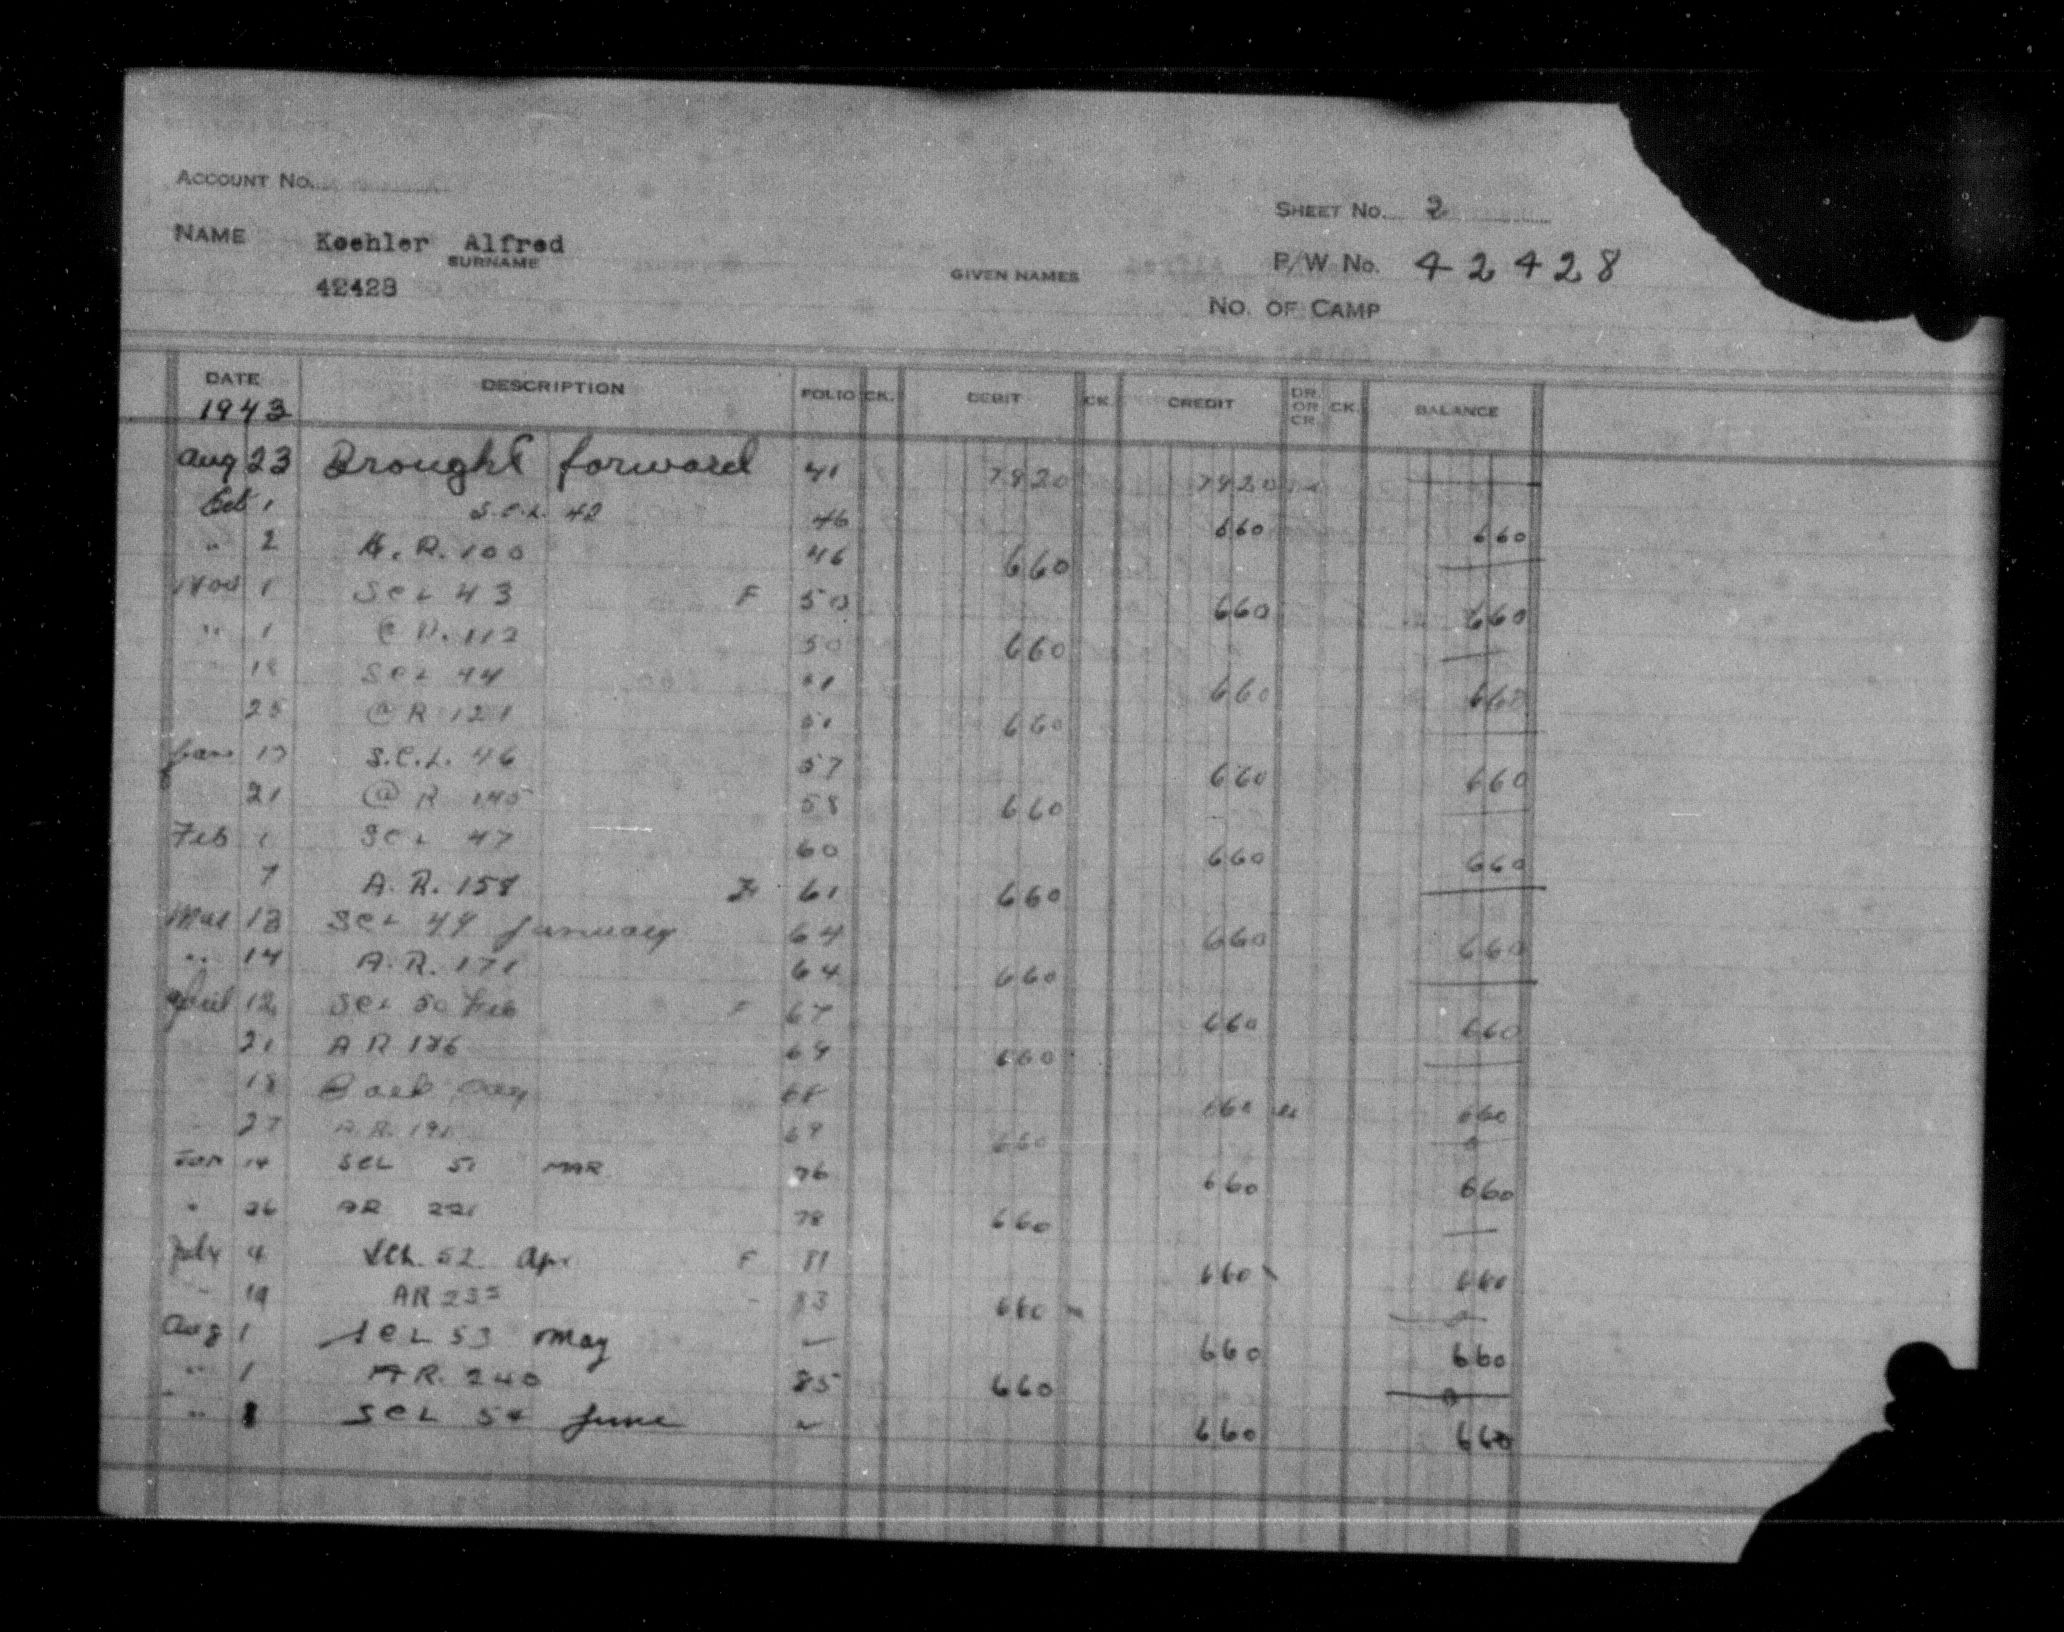 ACCOUNT No.
SHEET No. 2
NAME Koehler Alfred
SURNAME GIVEN NAMES P/W No. 42428
42428
No. OF CAMP
DATE DESCRIPTION FOLIO CK. DEBIT CK. CREDIT DR. OR CR. CK. BALANCE
1943
Aug 23 Brought forward 41 7920 7920
Oct 1 S.C.L. 42 46 660 660
" 2 A.R. 100 46 660
Nov 1 SCL 43 F 50 660 660
" 1 @ R. 112 50 660
SCL 44 660 660
25 @ R 121 51 660
Jan S.C.L. 46 57 660 660
21 @ R 145 58 660
Feb 1 SCL 47 60 660 660
7 A.R. 158 F 61 660
Mar 13 SCL 49 January 64 660 660
" 14 A.R. 171 64 660
April 12 SCL 50 Feb F 67 660 660
21 AR 186 69 660
18 Back Pay 68 660 660
27 A.R. 69 660
14 SCL 51 MAR 76 660 660
" 26 AR 221 78 660
July 4 SCL 52 Apr F 81 660 660
" 19 AR 83 660
Aug 1 SCL 53 May 660 660
" 1 AR. 240 85 660 0
" 1 SCL 54 June 660 660